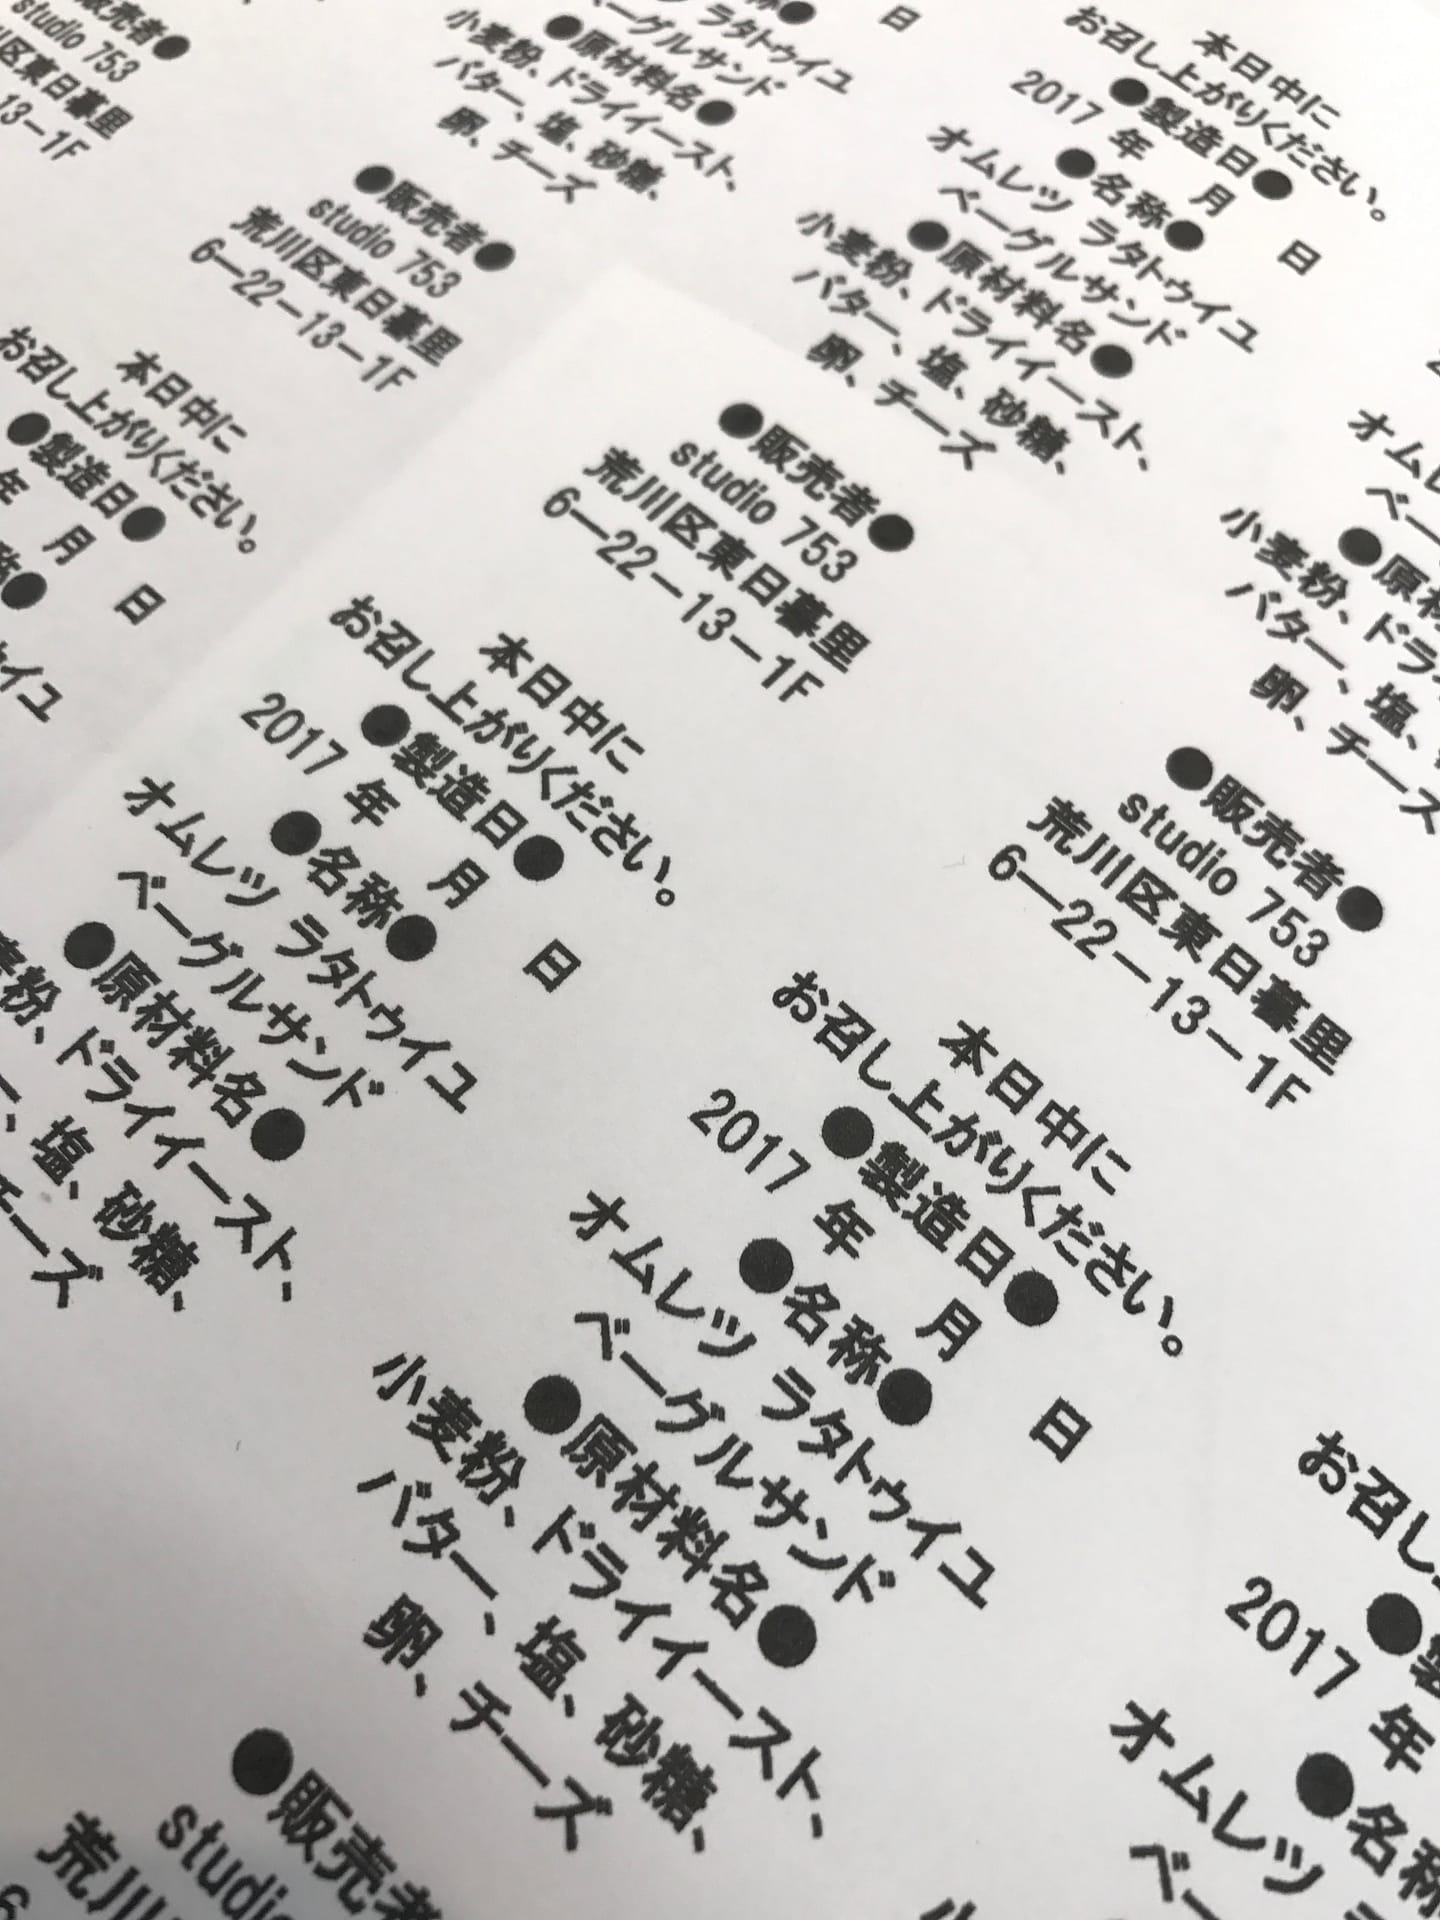 販売者●
studio 753
東日暮里
13−1F
ラタトゥイユ
ベーグルサンド
●原材料名●
小麦粉、ドライイースト、
バター、塩、砂糖、
卵、チーズ
日
●販売者●
studio 753
荒川区東日暮里
6―22−13−1F
本日中に
お召し上がりください。
●製造日●
2017 年 月 日
●名称●
オムレツ ラタトゥイユ
ベーグルサンド
●原材料名●
小麦粉、ドライイースト、
バター、塩、砂糖、
卵、チーズ
●販売者●
studio 753
荒川区東日暮里
6―22−13−1F
本日中に
お召し上がりください。
●製造日●
年 月 日
本日中に
お召し上がりください。
●製造日●
2017 年 月 日
●名称●
オムレツ ラタトゥイユ
ベーグルサンド
●原材料名●
麦粉、ドライイースト、
塩、砂糖、
チーズ
オムレ
ベー
●原材
小麦粉、ドラ
バター、塩、
卵、チーズ
●販売者●
studio 753
荒川区東日暮里
6―22−13−1F
本日中に
お召し上がりください。
●製造日●
2017 年 月 日
●名称●
オムレツ ラタトゥイユ
ベーグルサンド
●原材料名●
小麦粉、ドライイースト、
バター、塩、砂糖、
卵、チーズ
●販売者
studio
荒川
お召し
●製
2017 年
●名称
オムレツ
ベー
小